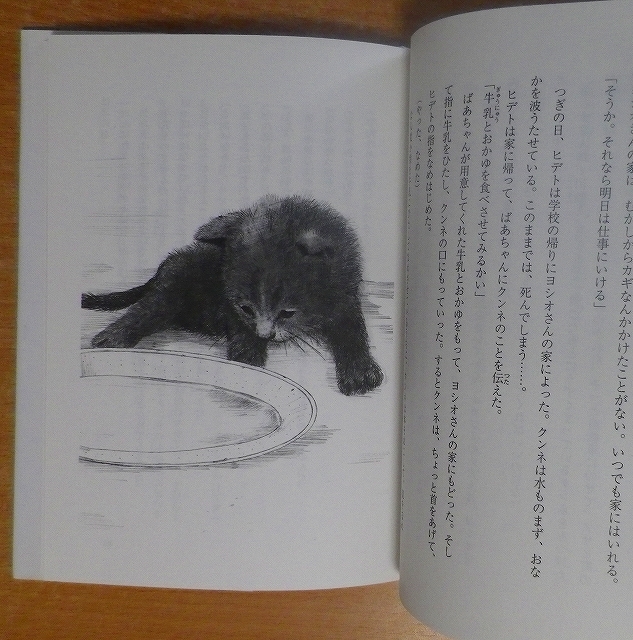 さんの家は、むかしからカギなんかかけたことがない。いつでも家にはいれる。
「そうか。それなら明日は仕事にいける」
つぎの日、ヒデトは学校の帰りにヨシオさんの家によった。クンネは水ものまず、おな
かを波うたせている。このままでは、死んでしまう……。
ヒデトは家に帰って、ばあちゃんにクンネのことを伝えた。
「牛乳とおかゆを食べさせてみるかい」
ばあちゃんが用意してくれた牛乳とおかゆをもって、ヨシオさんの家にもどった。そし
て指に牛乳をひたし、クンネの口にもっていった。するとクンネは、ちょっと首をあげて、
ヒデトの指をなめはじめた。
（やった、なめた）